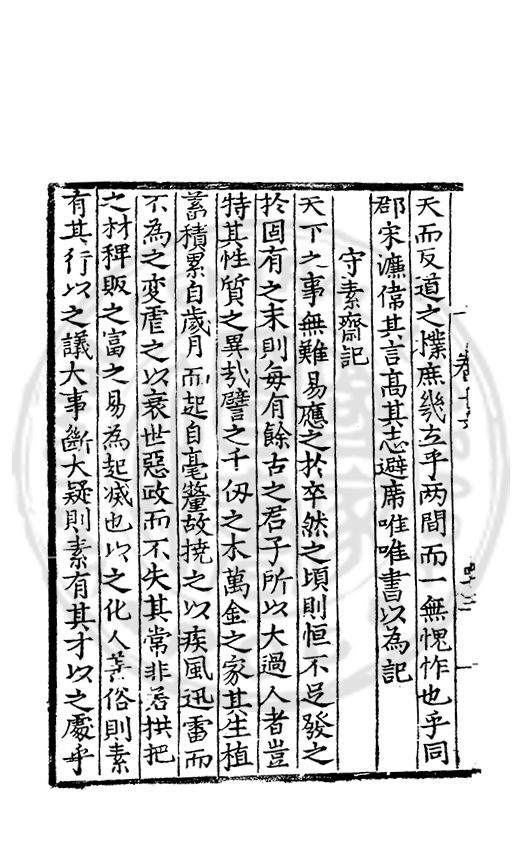 天而反道之樸庶幾立乎两間而一無愧怍也乎同
郡宋濂偉其言高其志避席唯唯書以為記
守素齋記
天下之事無難易應之於卒然之頃則恒不足發之
於固有之末則每有餘古之君子所以大過人者豈
特其性質之異哉譬之千仞之木萬金之家其生植
蓄積累自歲月而起自毫釐故撓之以疾風迅雷而
不為之変虐之以衰世惡政而不失其常非若拱把
之材稗販之富之易為起滅也以之化人善俗則素
有其行以之議大事斷大疑則素有其才以之處乎